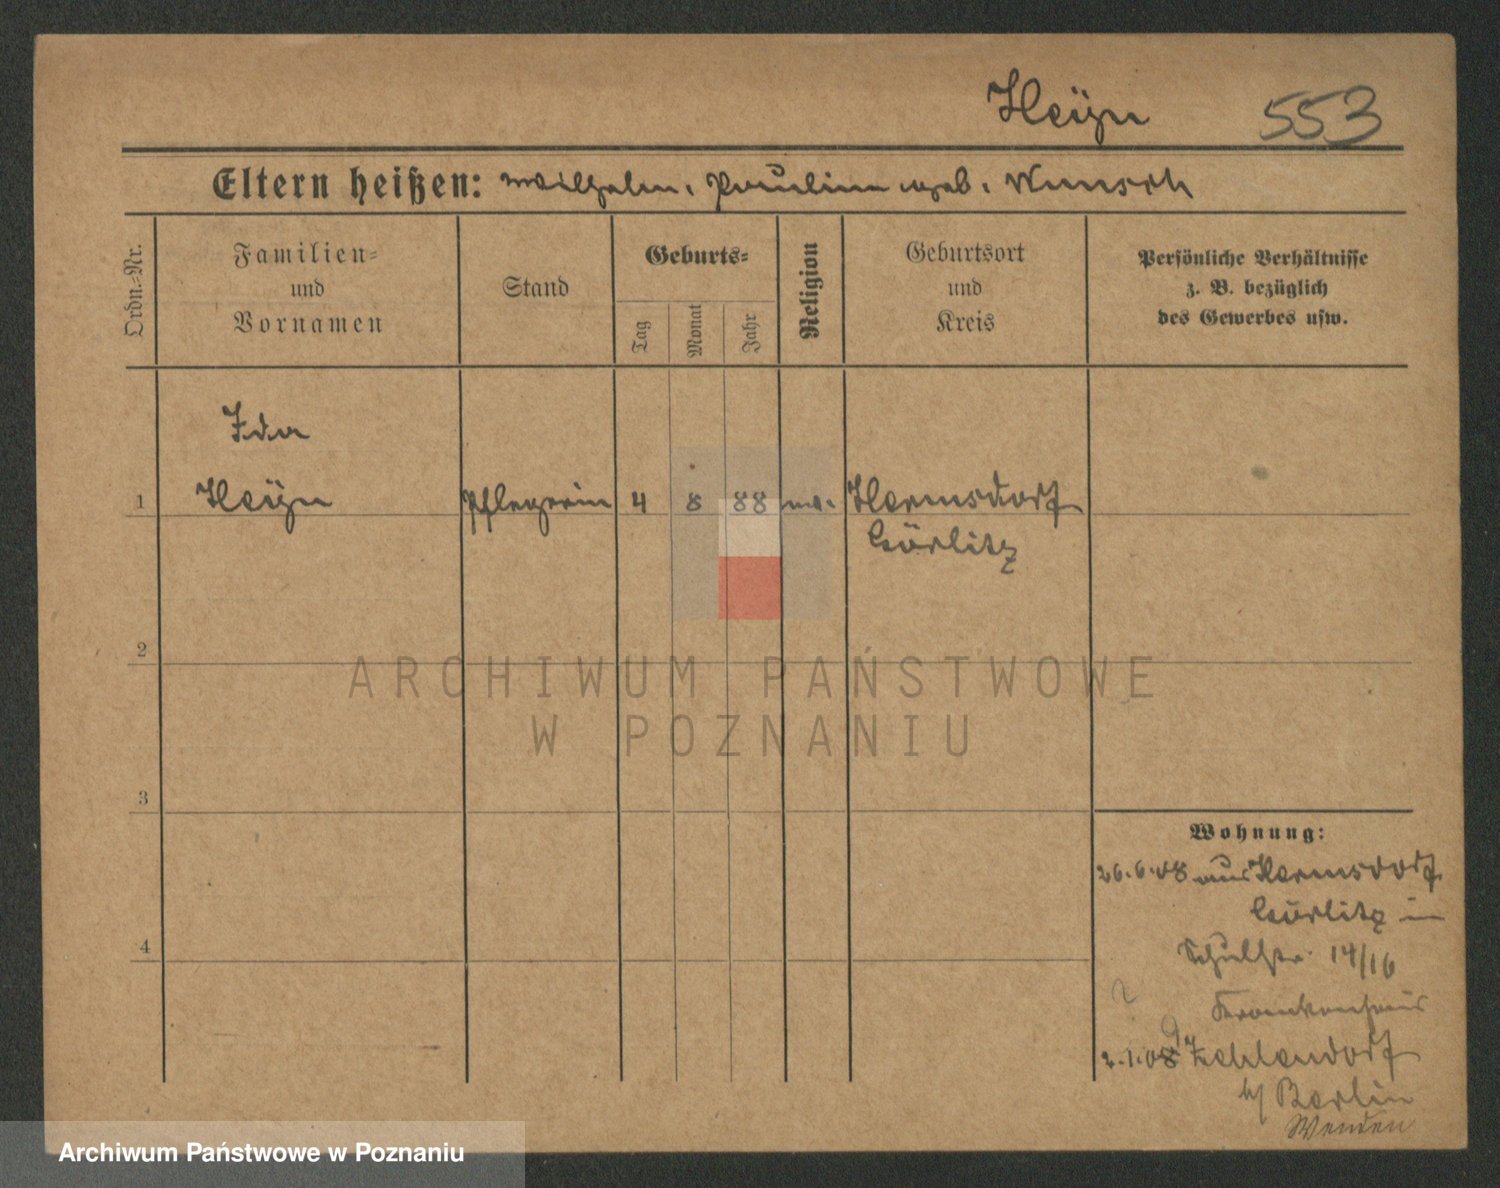 Heÿn 553
Eltern heißen: Wilhelm, Pauline geb. Wunsch
Ordn.-Nr.
Familien-
und
Vornamen
Stand
Geburts-
Tag
Monat
Jahr
Religion
Geburtsort
und
Kreis
Persönliche Verhältnisse
z. B. bezüglich
des Gewerbes usw.
Ida
1 Heÿn Pflegerin 4 8 88 ev. Hermsdorf
Görlitz
2
ARCHIWUM PAŃSTWOWE
W POZNANIU
3
Wohnung:
26.6.08 aus Hermsdorf
Görlitz in
4
Schulstr. 14/16
Krankenhaus
9
2.1.08 Zehlendorf
b/ Berlin
Archiwum Państwowe w Poznaniu